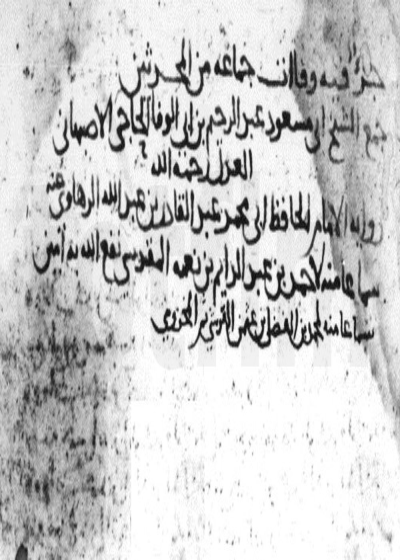 جزء فيه وفاات جماعه من المحدثين
جمع الشيخ ابي مسعود عبد الرحيم بن ابي الوفا الحاجي الاصبهاني
العدل رحمه الله
روايه الامام الحافظ ابي محمد عبد القادر بن عبد الله الرهاوي عنه
سماعا منه لاحمد بن عبد الدايم بن نعمه المقدسي نفع الله به امين
سماعا منه لمحمد بن الفضل بن القرشي المخزومي